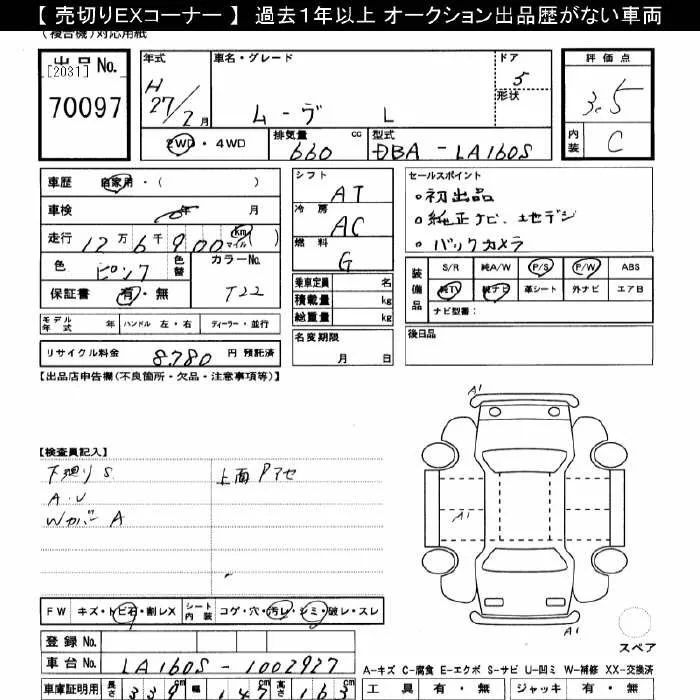 【 売切りEXコーナー 】 過去1年以上 オークション出品歴がない車両
(複合機)対応用紙
出品No. [2031] 70097
年式 H27/2月
車名・グレード ムーヴ L
ドア 5
形状
評価点 3.5
2WD・4WD
排気量 660 cc
型式 DBA-LA160S
内装 C
車歴 自家用・( )
車検 年 月
走行 12万6千900 Km マイル ( )
色 ピンク 色替 カラーNo. T22
保証書 有・無
シフト AT
冷房 AC
燃料 G
乗車定員 名
積載量 kg
総重量 kg
名変期限 月 日
セールスポイント
○初出品
○純正ナビ、地デジ
○バックカメラ
装備品 S/R 純A/W P/S P/W ABS
純TV 純ナビ 革シート 外ナビ エアB
ナビ型番:
モデル年式 年 ハンドル 左・右 ディーラー・並行
後日品
リサイクル料金 8,780 円 預託済
【出品店申告欄(不良箇所・欠品・注意事項等)】
【検査員記入】
下廻りS 上面Pアセ
A.U
WカバーA
A1
A1
A1
FW キズ・トビ石・割レX シート内装 コゲ・穴・汚レ・シミ・破レ・スレ
スペア
登録No.
車台No. LA160S-1002927
A-キズ C-腐食 E-エクボ S-サビ U-凹ミ W-補修 XX-交換済
車庫証明用 長さ 339cm 幅 147cm 高さ 163cm
工具 有・無 ジャッキ 有・無